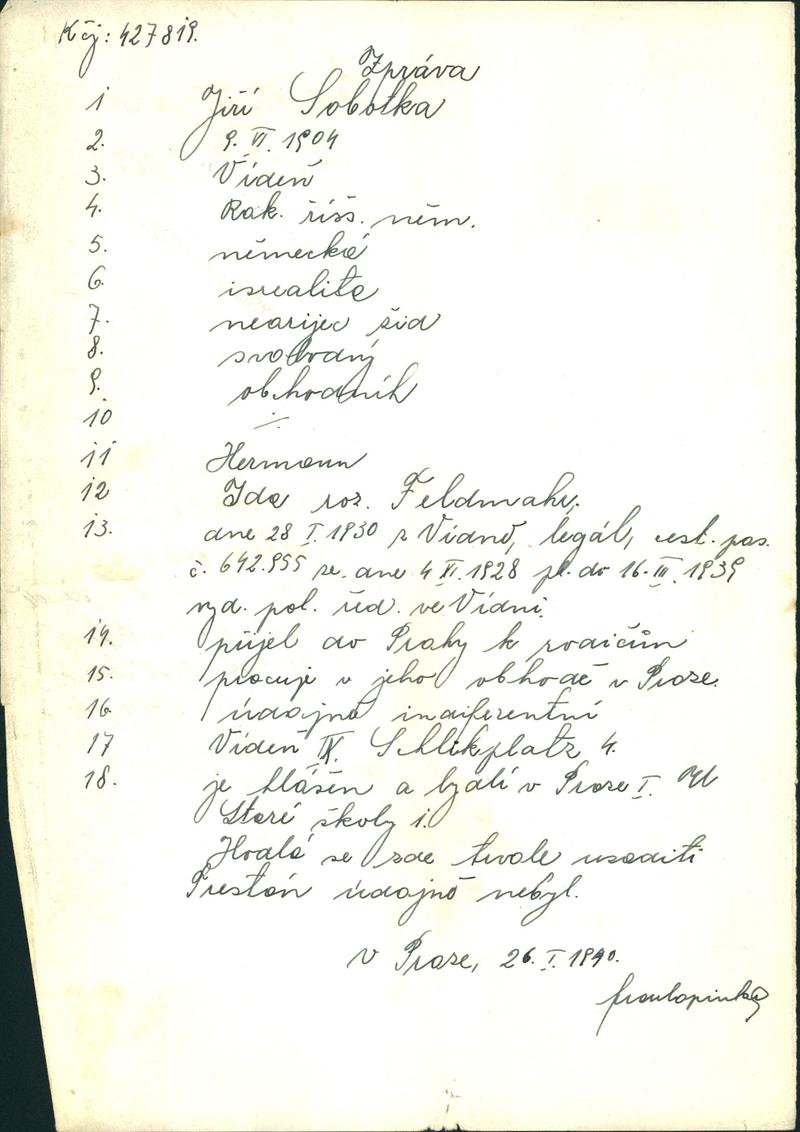 K čj: 427819.
Zpráva
1 Jiří Sobotka
2. 9. VI. 1904
3. Vídeň
4. Rak. říšš. něm.
5. německá
6. isrealita
7. nearijec žid
8. svobodný
9. obchodník
10 ÷
11 Hermann
12 Ida roz. Feldmahr,
13. dne 28 I. 1930 z Vídně, legál, cest. pas.
č. 642.955 ze. dne 4 XI. 1928 pl. do 16. III. 1939
vyd. pol. řed. ve Vídni.
14. přijel do Prahy k rodičům
15. pracuje v jeho obhodě v Praze.
16. údajně indiferentní
17 Vídeň IX. Schlikplatz 4.
18. je hlášen a bydlí v Praze I. U
Staré školy 1.
Hodlá se zde trvale usaditi
Trestán údajně nebyl.
V Praze, 26. I. 1940.